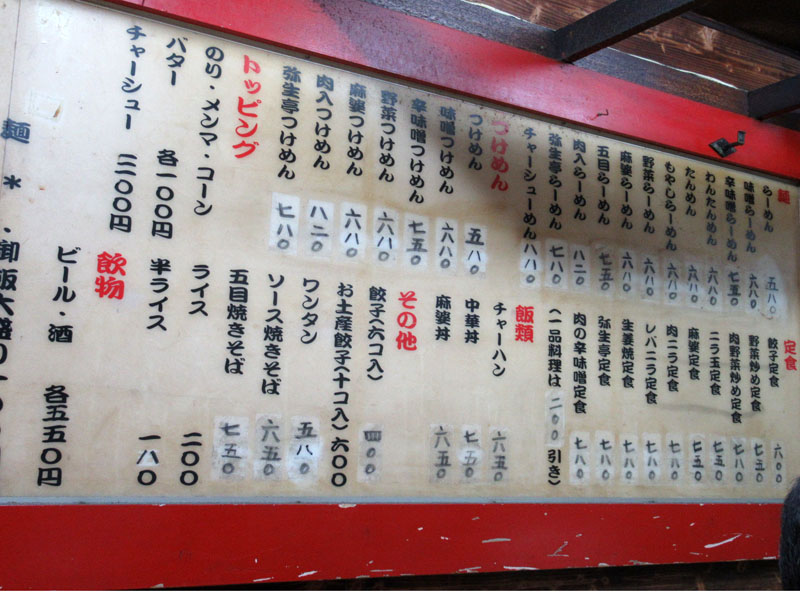 麺
らーめん 五八〇
味噌らーめん 六八〇
辛味噌らーめん 七五〇
わんたんめん 六八〇
たんめん 六八〇
もやしらーめん 六八〇
野菜らーめん 六八〇
麻婆らーめん 六八〇
五目らーめん 七五〇
肉入らーめん 八二〇
弥生亭らーめん 七八〇
チャーシューめん 八八〇
つけめん
つけめん 五八〇
味噌つけめん 六八〇
辛味噌つけめん 七五〇
野菜つけめん 六八〇
麻婆つけめん 六八〇
肉入つけめん 八二〇
弥生亭つけめん 七八〇
トッピング
のり・メンマ・コーン
バター 各一〇〇円
チャーシュー 二〇〇円
定食
餃子定食 六〇〇
野菜炒め定食 七五〇
肉野菜炒め定食 七八〇
ニラ玉定食 七五〇
麻婆定食 七五〇
肉ニラ定食 七八〇
レバニラ定食 七八〇
生姜焼定食 七八〇
弥生亭定食 七八〇
肉の辛味噌定食 七八〇
(一品料理は二〇〇引き)
飯類
チャーハン 六五〇
中華丼 七五〇
麻婆丼 六五〇
その他
餃子(六コ入) 四〇〇
お土産餃子(十コ入)六〇〇
ワンタン 五八〇
ソース焼きそば 六五〇
五目焼きそば 七五〇
ライス 二〇〇
半ライス 一八〇
飲物
ビール・酒 各五五〇円
麺*・御飯大盛り一